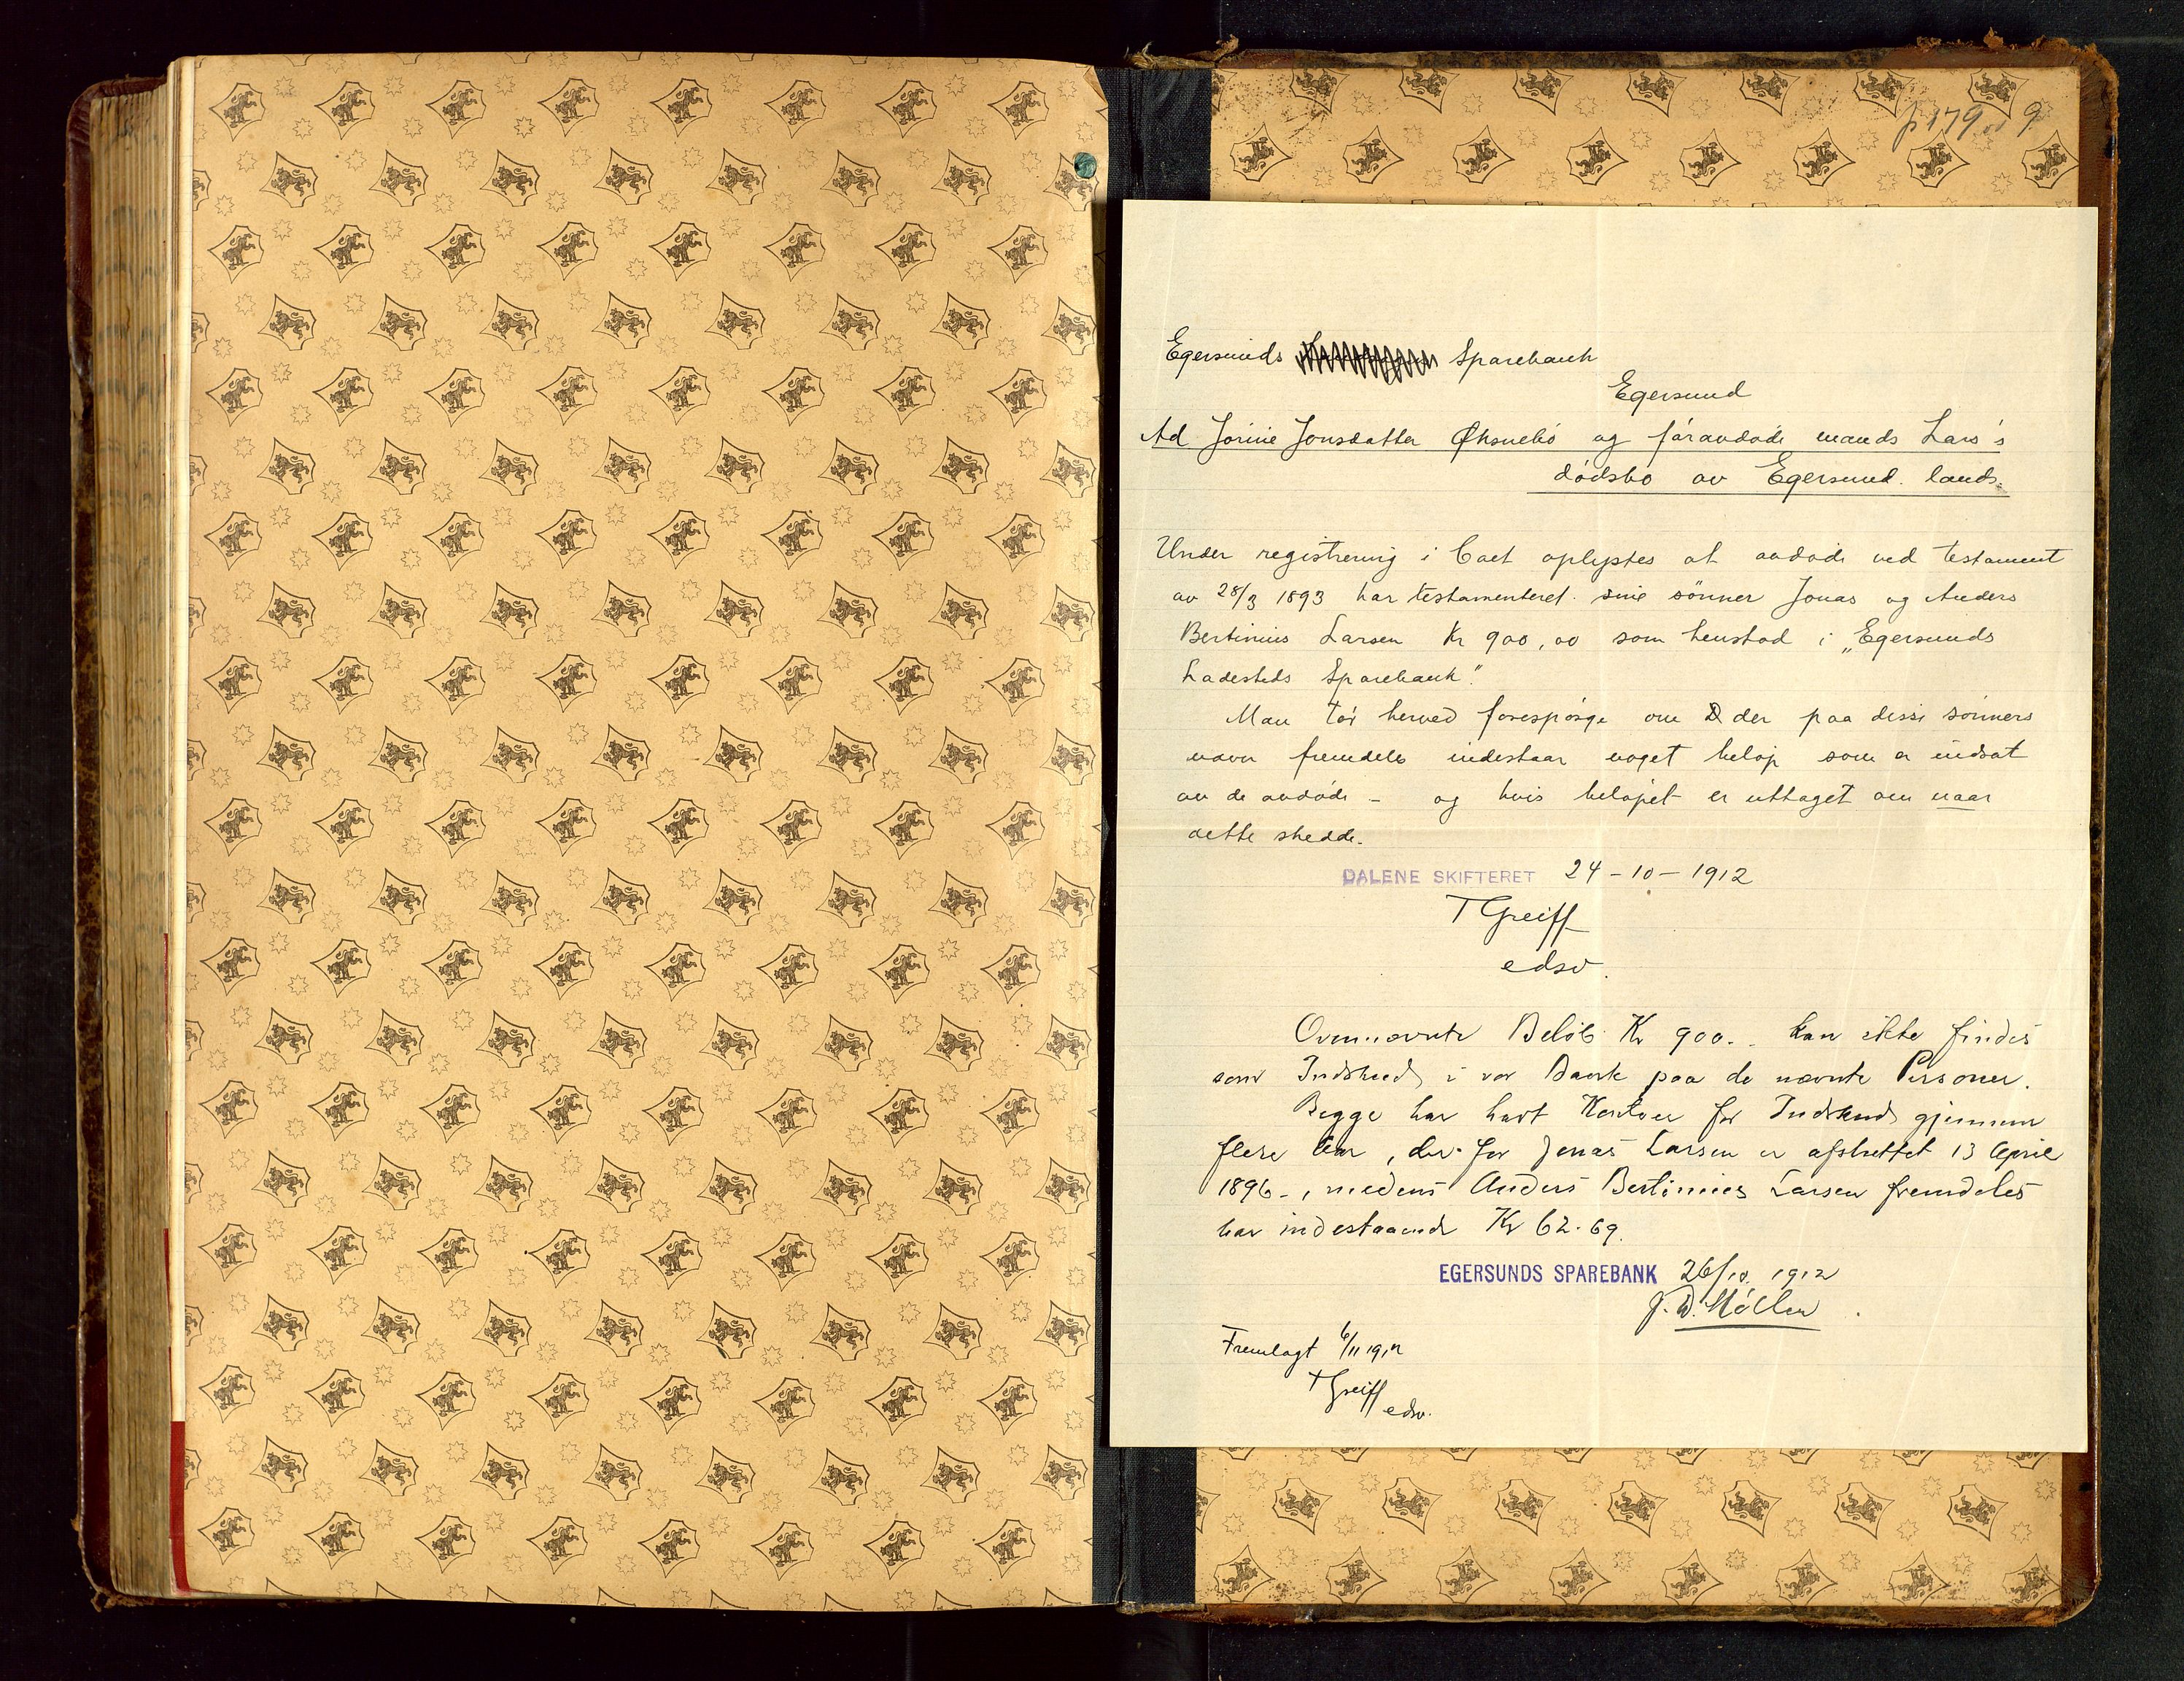 p 179 9
Egersunds Sparebank
Egersund
Ad Jorine Jonsdatter Øksnebö og føravdøde mands Lars's
dødsbo av Egersund lands.
Under registrering i boet oplystes at avdøde ved testament
av 28/3 1893 har testamenteret sine sönner Jonas og Anders
Bertinius Larsen Kr 900,00 som henstod i „Egersunds
Ladesteds Sparebank".
Man tør herved forespørge om der paa disse sønners
navn fremdeles indestaar noget beløp som er indsat
av de avdøde - og hvis beløpet er uttaget om naar
dette skedde.
DALENE SKIFTERET 24-10-1912
T Greiff
edsv.
Ovennævnte Beløb Kr 900.- kan ikke findes
som Indskud i vor Bank paa de nævnte Personer.
Begge har havt Kontoer for Indskud gjennem
flere Aar, der for Jonas Larsen er afsluttet 13 April
1896-, medens Anders Bertinius Larsen fremdeles
har indestaaende Kr 62.69.
EGERSUNDS SPAREBANK 26/10 1912
J. W. Møller
Fremlagt 6/11 1912
T Greiff
edsv.